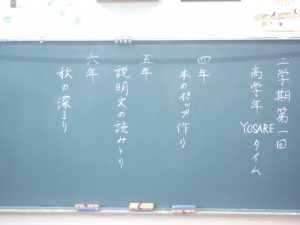 二学期第一回
高学年 YOSAREタイム
四年
本のポップ作り
五年
説明文の読みとり
六年
秋の深まり